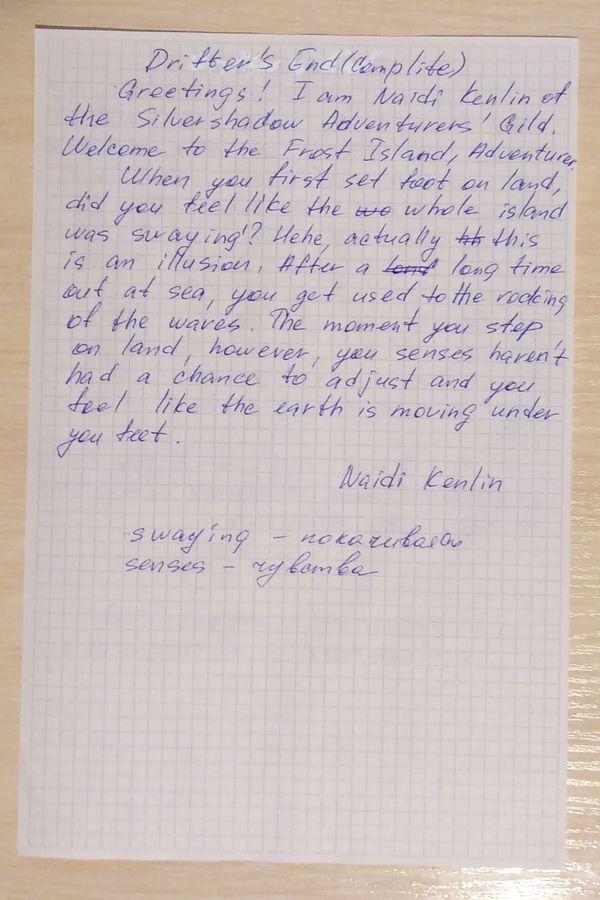 Drifter's End (Complite)
Greetings! I am Naidi Kenlin of
the Silvershadow Adventurers' Gild.
Welcome to the Frost Island, Adventurer.
When you first set foot on land,
did you feel like the wo whole island
was swaying? Hehe, actually th this
is an illusion. After a long time
out at sea, you get used to the rocking
of the waves. The moment you step
on land, however, you senses haven't
had a chance to adjust and you
feel like the earth is moving under
you feet.
Naidi Kenlin
swaying – покачиваясь
senses – чувства